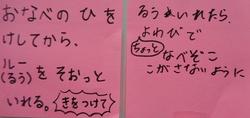 おなべの ひを
けしてから、
ルー
(るう)を そおっと
いれる。 きをつけて
るう いれたら、
よわびで
ちょっと なべぞこ
こがさないように